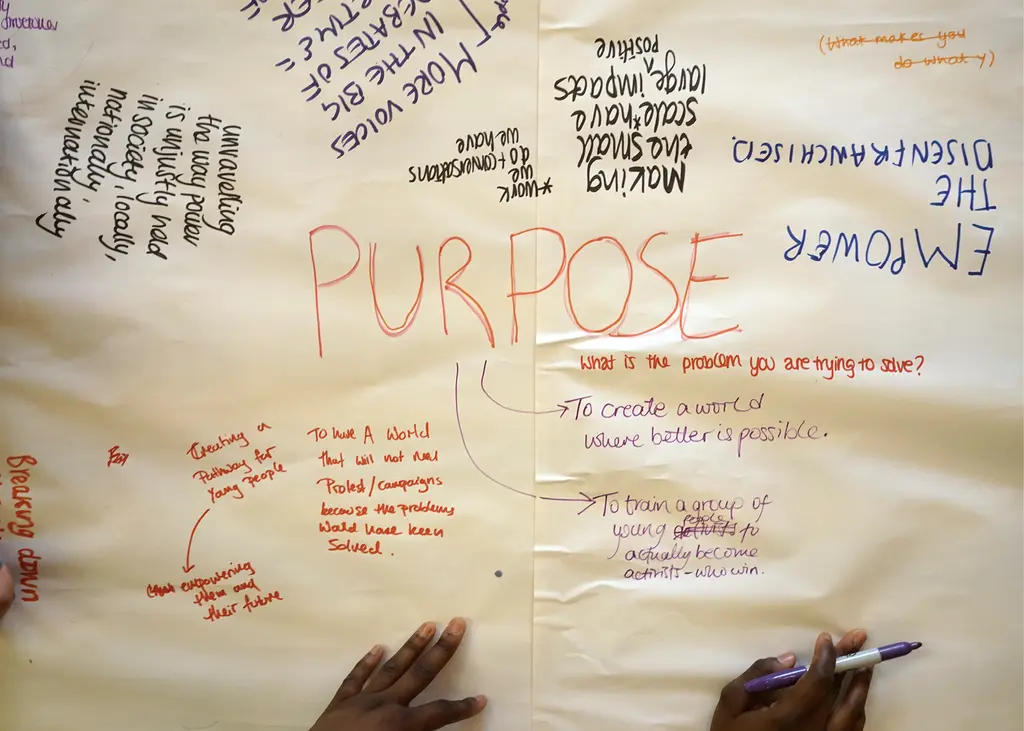 PURPOSE
What is the problem you are trying to solve?
To create a world
where better is possible.
To train a group of
people
young activists to
actually become
activists - who win.
To have A World
that will not need
Protest/campaigns
because the problems
Would have been
Solved.
Creating a
Pathway for
Young People
empowering
them and
their future
Breaking down
unravelling
the way power
is unjustly held
in society, locally,
nationally,
internationally
MORE VOICES
IN THE BIG
DEBATES OF
Making
the small
scale* have
large, impacts
positive
*work
we
do + conversations
we have
EMPOWER
THE
DISENFRANCHISED.
(What makes you
do what y)